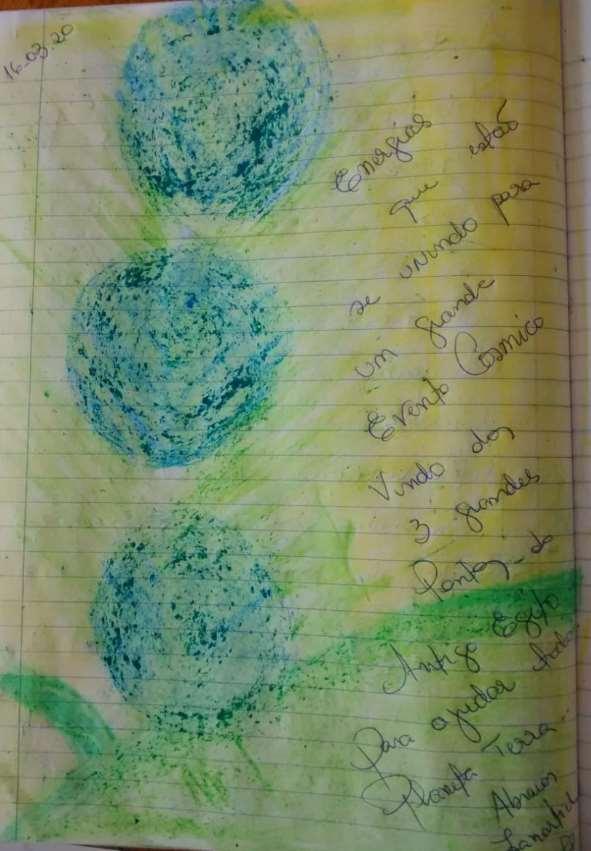 16-03-20
Energias
que estão
se unindo para
um grande
Evento Cósmico
Vindo dos
3 grandes
Pontos do
Antigo Egito
para ajudar todo
Planeta Terra
Abraços